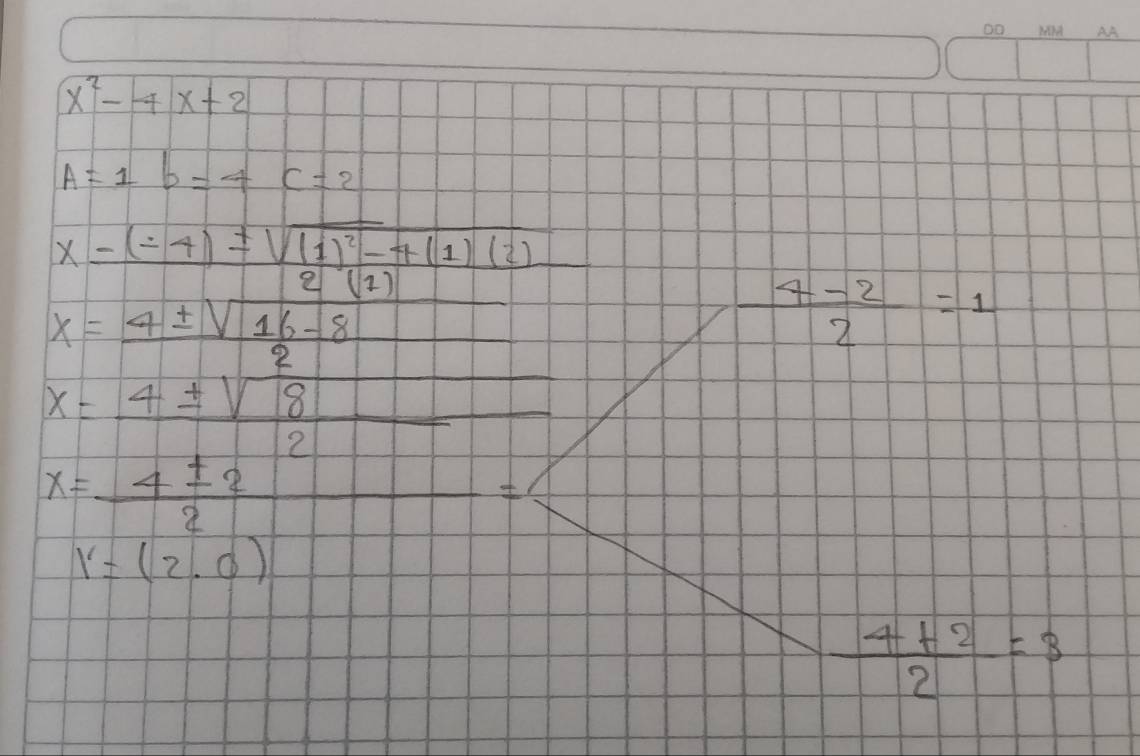 DD MM AA
x² - 4x + 2
A = 1 b = 4 c = 2
x - (-4) ± √(1)² - 4(1)(2)
2 (1)
x = 4 ± √16 - 8
2
x = 4 ± √8
2
x = 4 ± 2 =
2
4 - 2 = 1
2
4 + 2 = 3
2
V = (2.0)